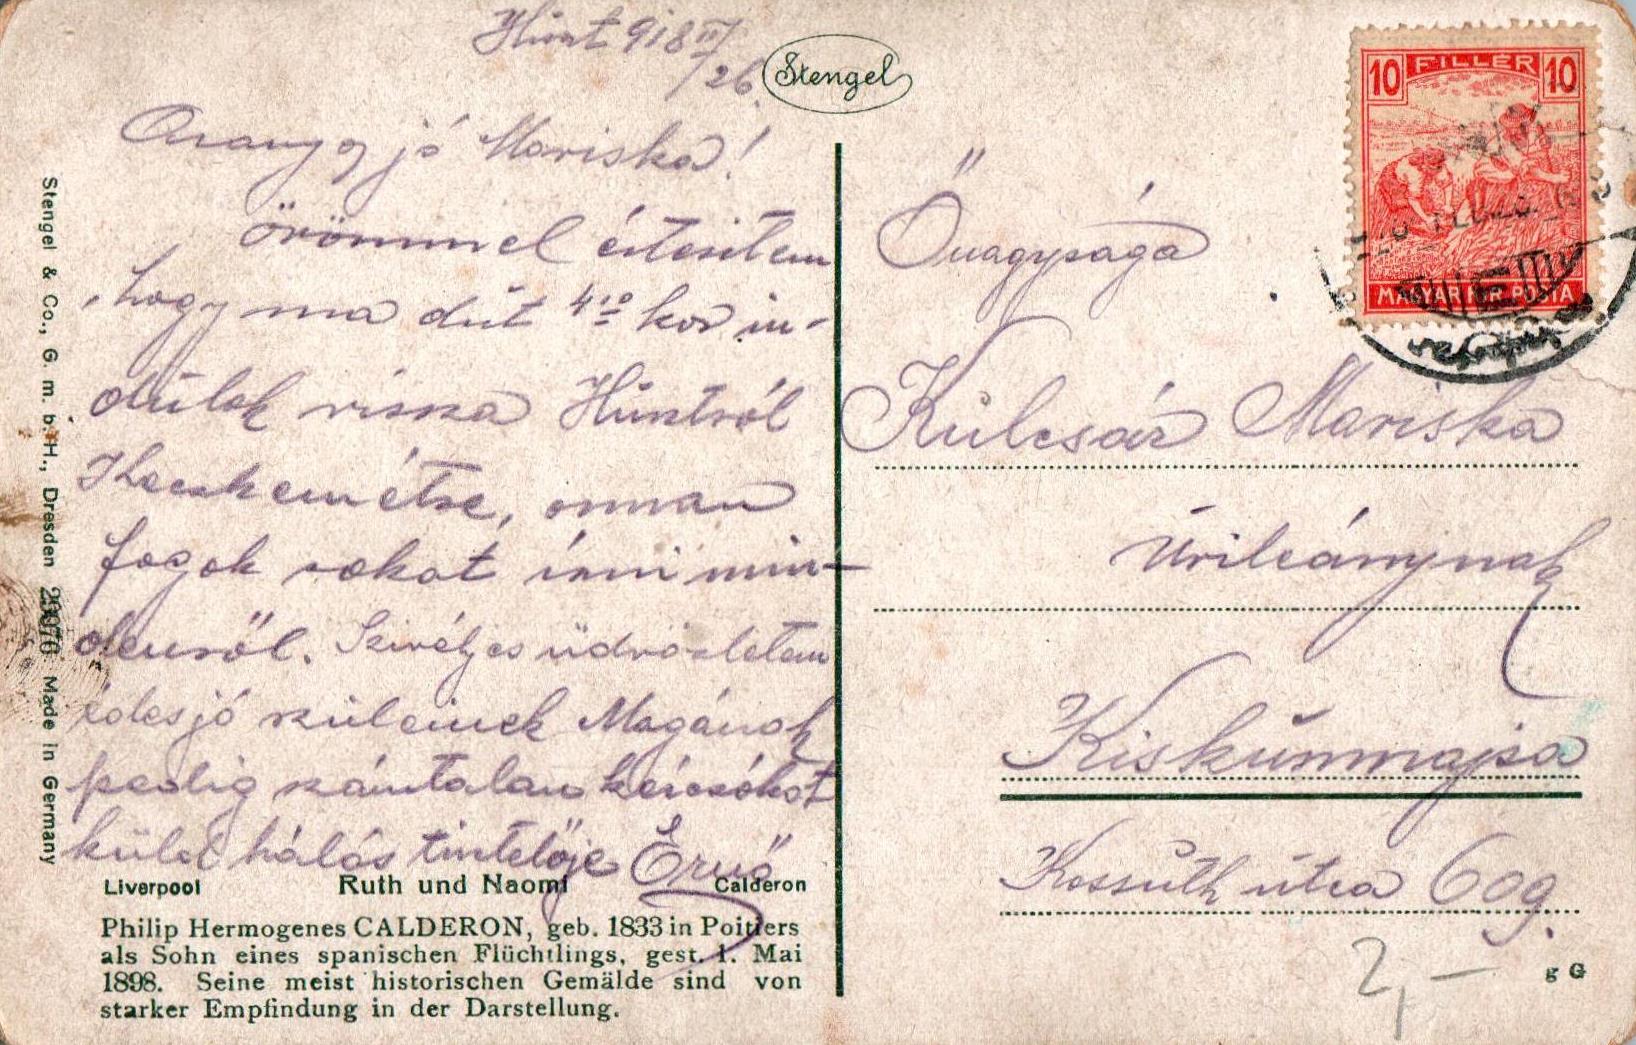 Hunt 918 IV/26.
Stengel
Aranyos jó Mariska!
örömmel értesitem
, hogy ma dút 4¹⁰ kor in-
dúlok vissza Húntról
Kecskemétre, onnan
fogok sokat írni min-
denről. Szívélyes üdvözletem
édes jó szüleinek Magának
pedig számtalan kézcsókot
küld hálás tisztelője Ernő
Őnagysága
Kúlcsár Mariska
Úrileánynak
Kiskúnmajsa
Kossúth útca 609.
10 FILLÉR 10
MAGYAR KIR. POSTA
Stengel & Co., G. m. b. H., Dresden 29076 Made in Germany
Liverpool Ruth und Naomi Calderon
Philip Hermogenes CALDERON, geb. 1833 in Poitiers
als Sohn eines spanischen Flüchtlings, gest. 1. Mai
1898. Seine meist historischen Gemälde sind von
starker Empfindung in der Darstellung.
2,-
g G